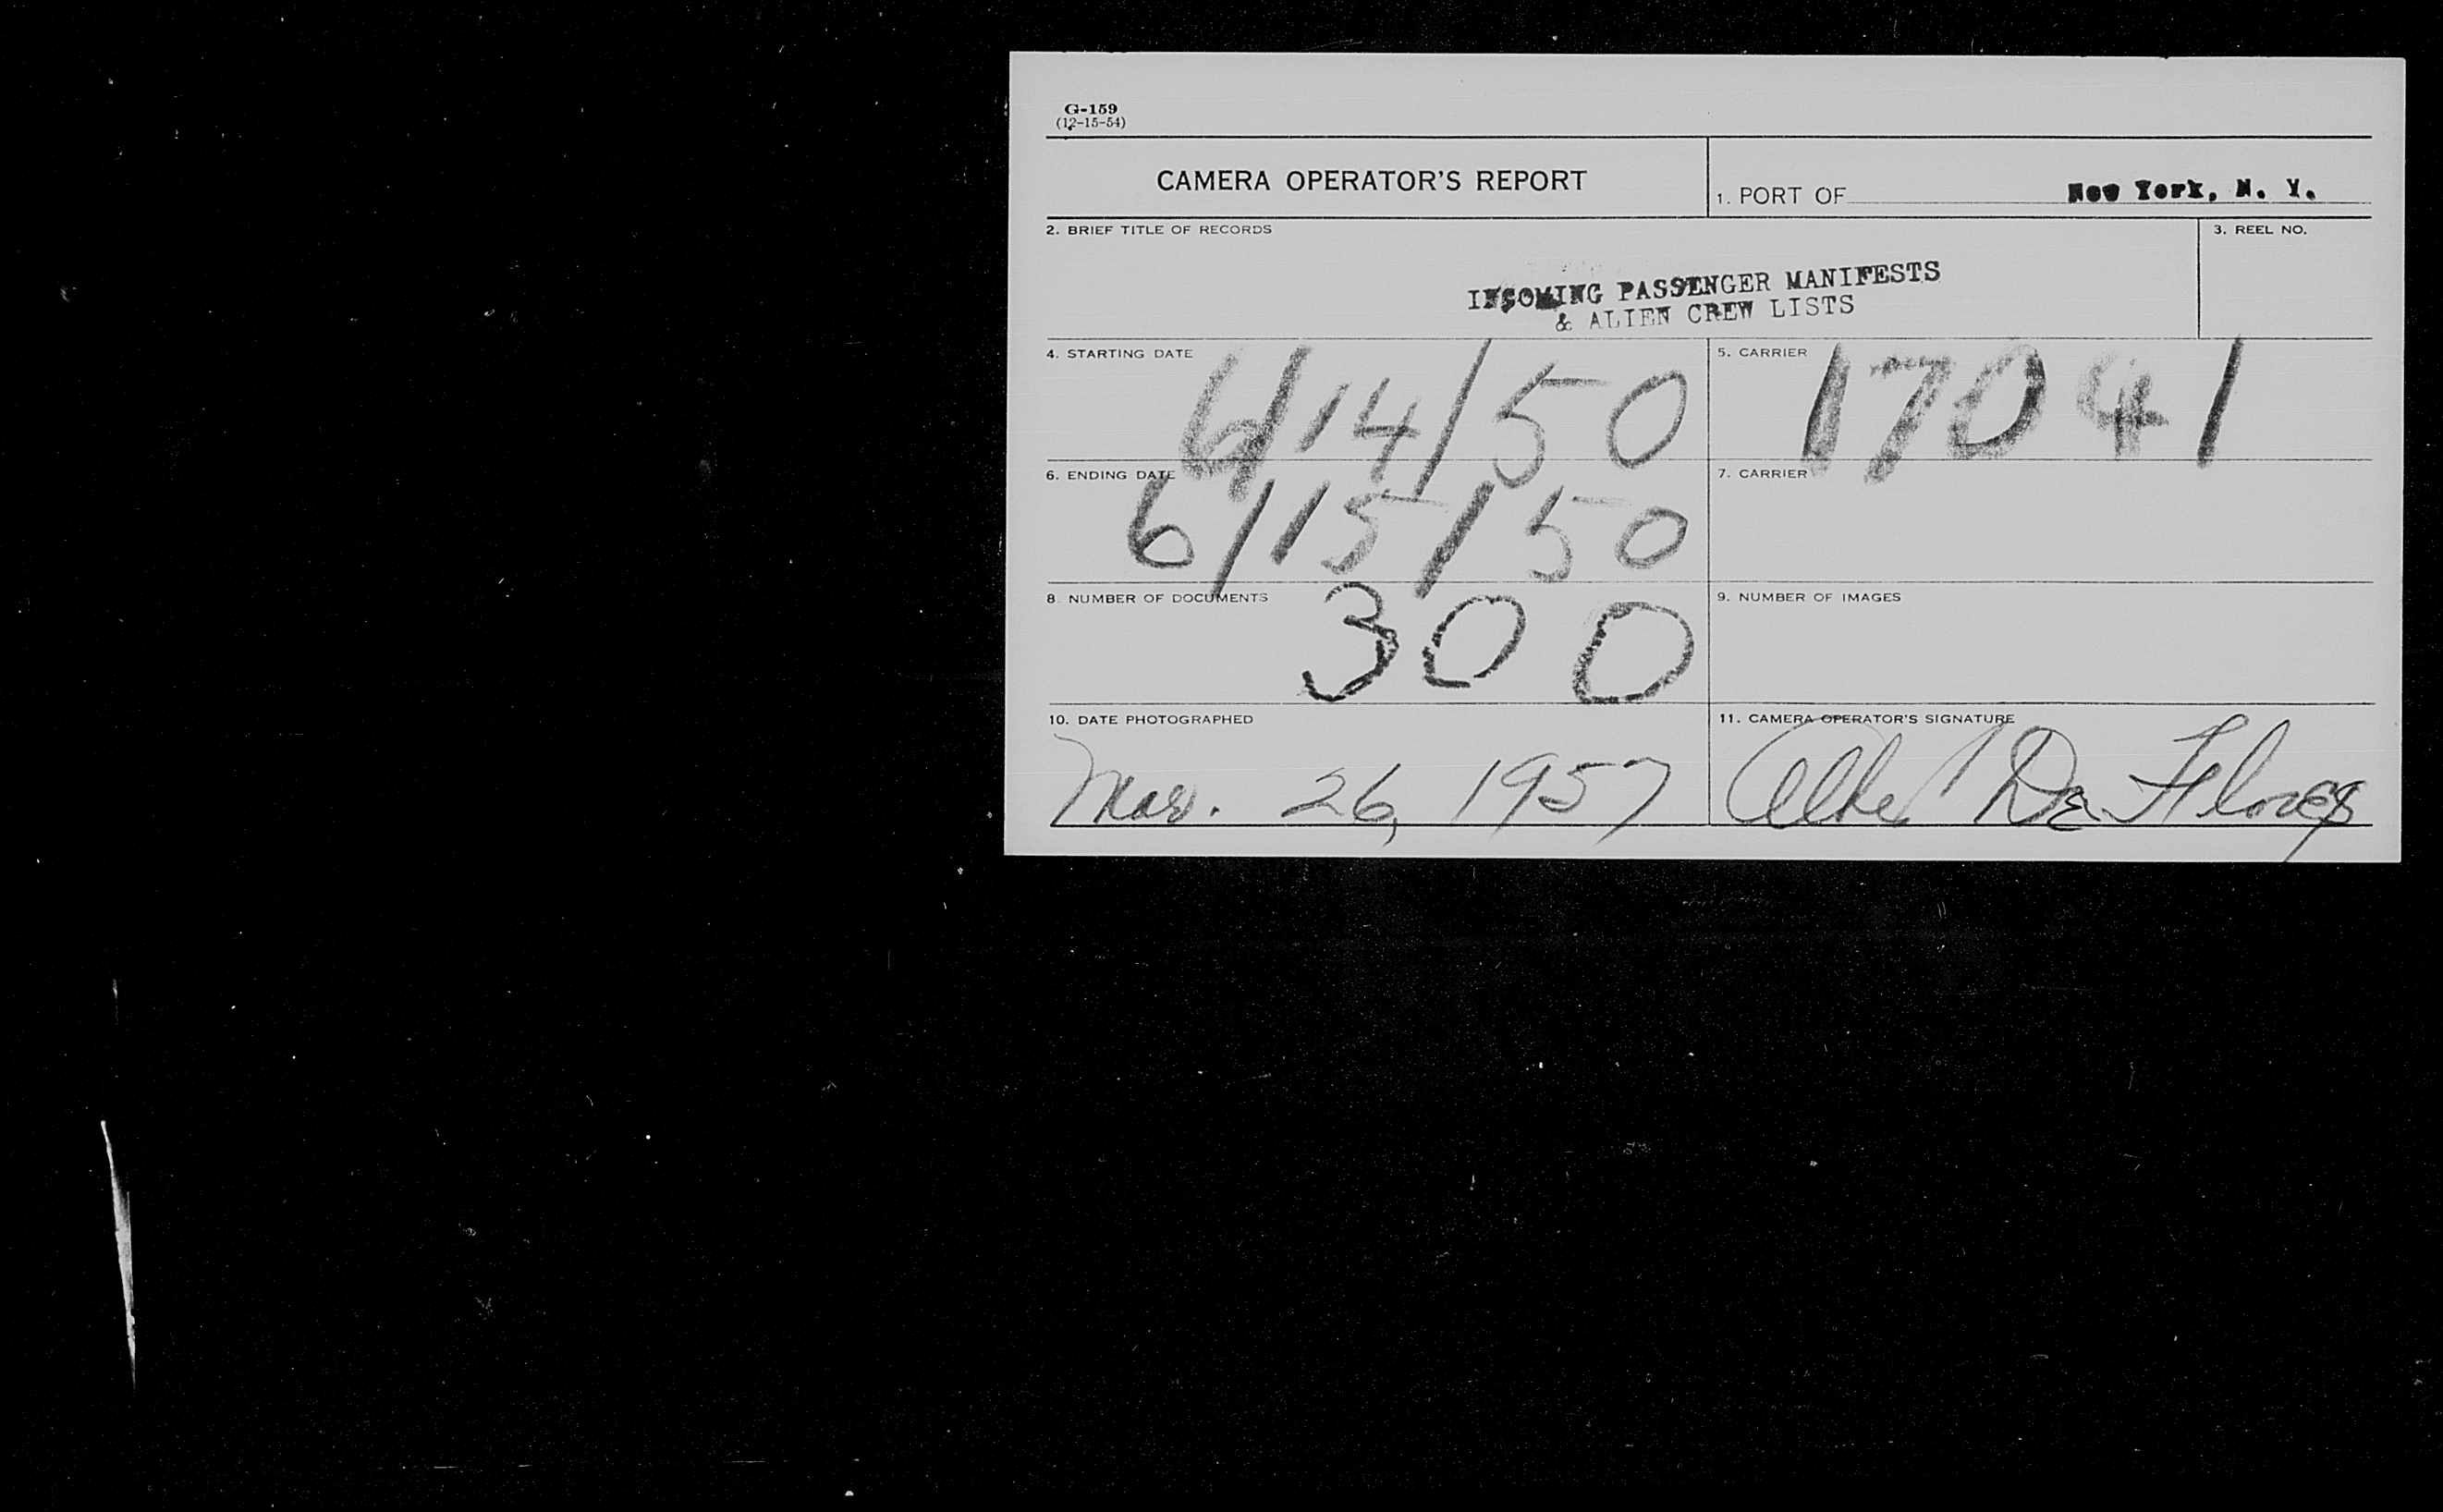 G-159
(12-15-54)
CAMERA OPERATOR'S REPORT
1. PORT OF New York, N. Y.
2. BRIEF TITLE OF RECORDS
3. REEL NO.
INCOMING PASSENGER MANIFESTS
& ALIEN CREW LISTS
4. STARTING DATE 6/14/50
5. CARRIER 17041
6. ENDING DATE 6/15/50
7. CARRIER
8. NUMBER OF DOCUMENTS 300
9. NUMBER OF IMAGES
10. DATE PHOTOGRAPHED
11. CAMERA OPERATOR'S SIGNATURE
Mar. 26, 1957
De